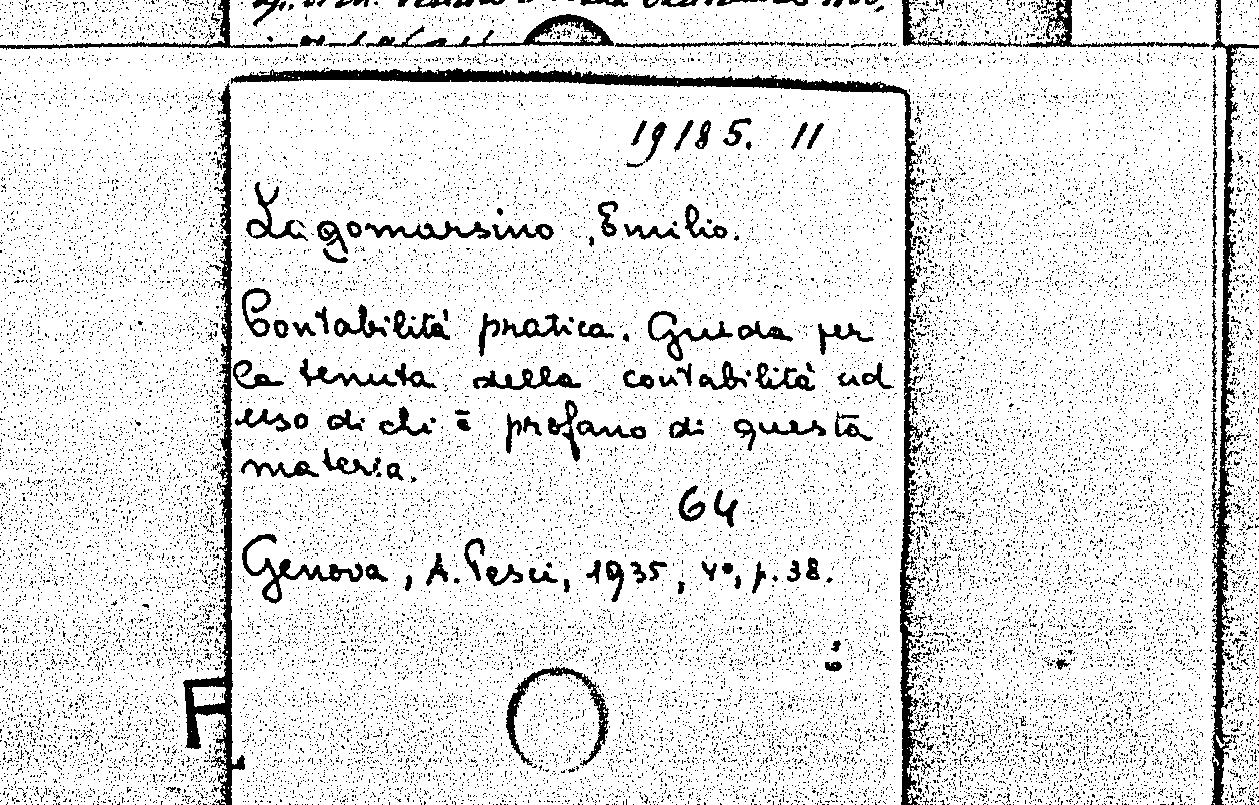 19185. 11
Lagomarsino, Emilio.
Contabilità pratica. Guida per
la tenuta della contabilità ad
uso di chi è profano di questa
materia.
64
Genova, A. Pesci, 1935, 4°, p. 38.